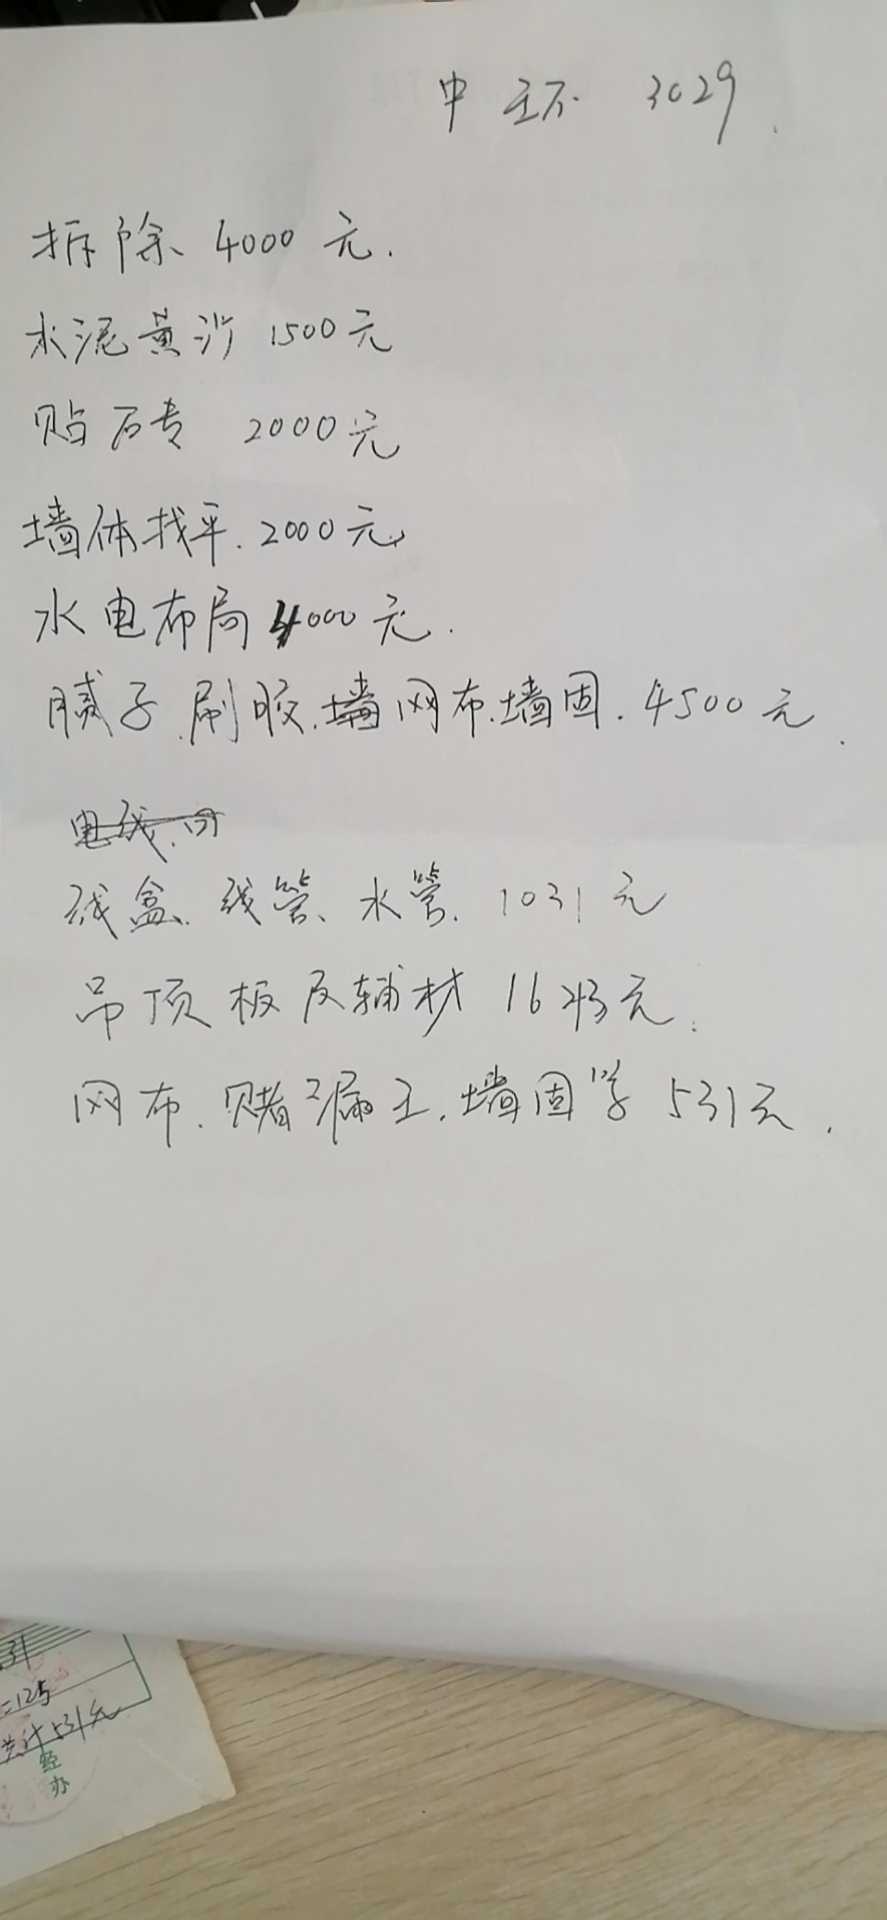 中环 3029
拆除 4000元.
水泥黄沙 1500元
贴石专 2000元
墙体找平. 2000元
水电布局 4000元.
腻子.刷胶.墙网布.墙固. 4500元.
电线.
线盒、线管、水管. 1031元
吊顶板及辅材 1643元.
网布.赌漏王.墙固等 531元.
31
=125
共计531元
经
办